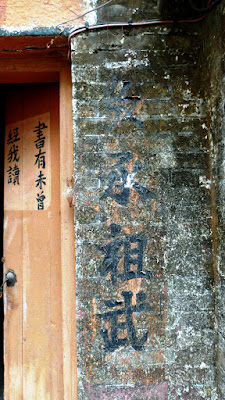 承祖武
書有未曾
經我讀